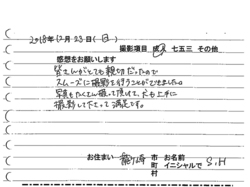 2018年12月23日(日)
撮影項目 成人 七五三 その他
感想をお願いします
皆さんがとても親切だったので
スムーズに撮影を行うことができました。
写真もたくさん撮って頂けて、とても上手に
撮影して下さって満足です。
お住まい 市町村 お名前 イニシャルで S.H